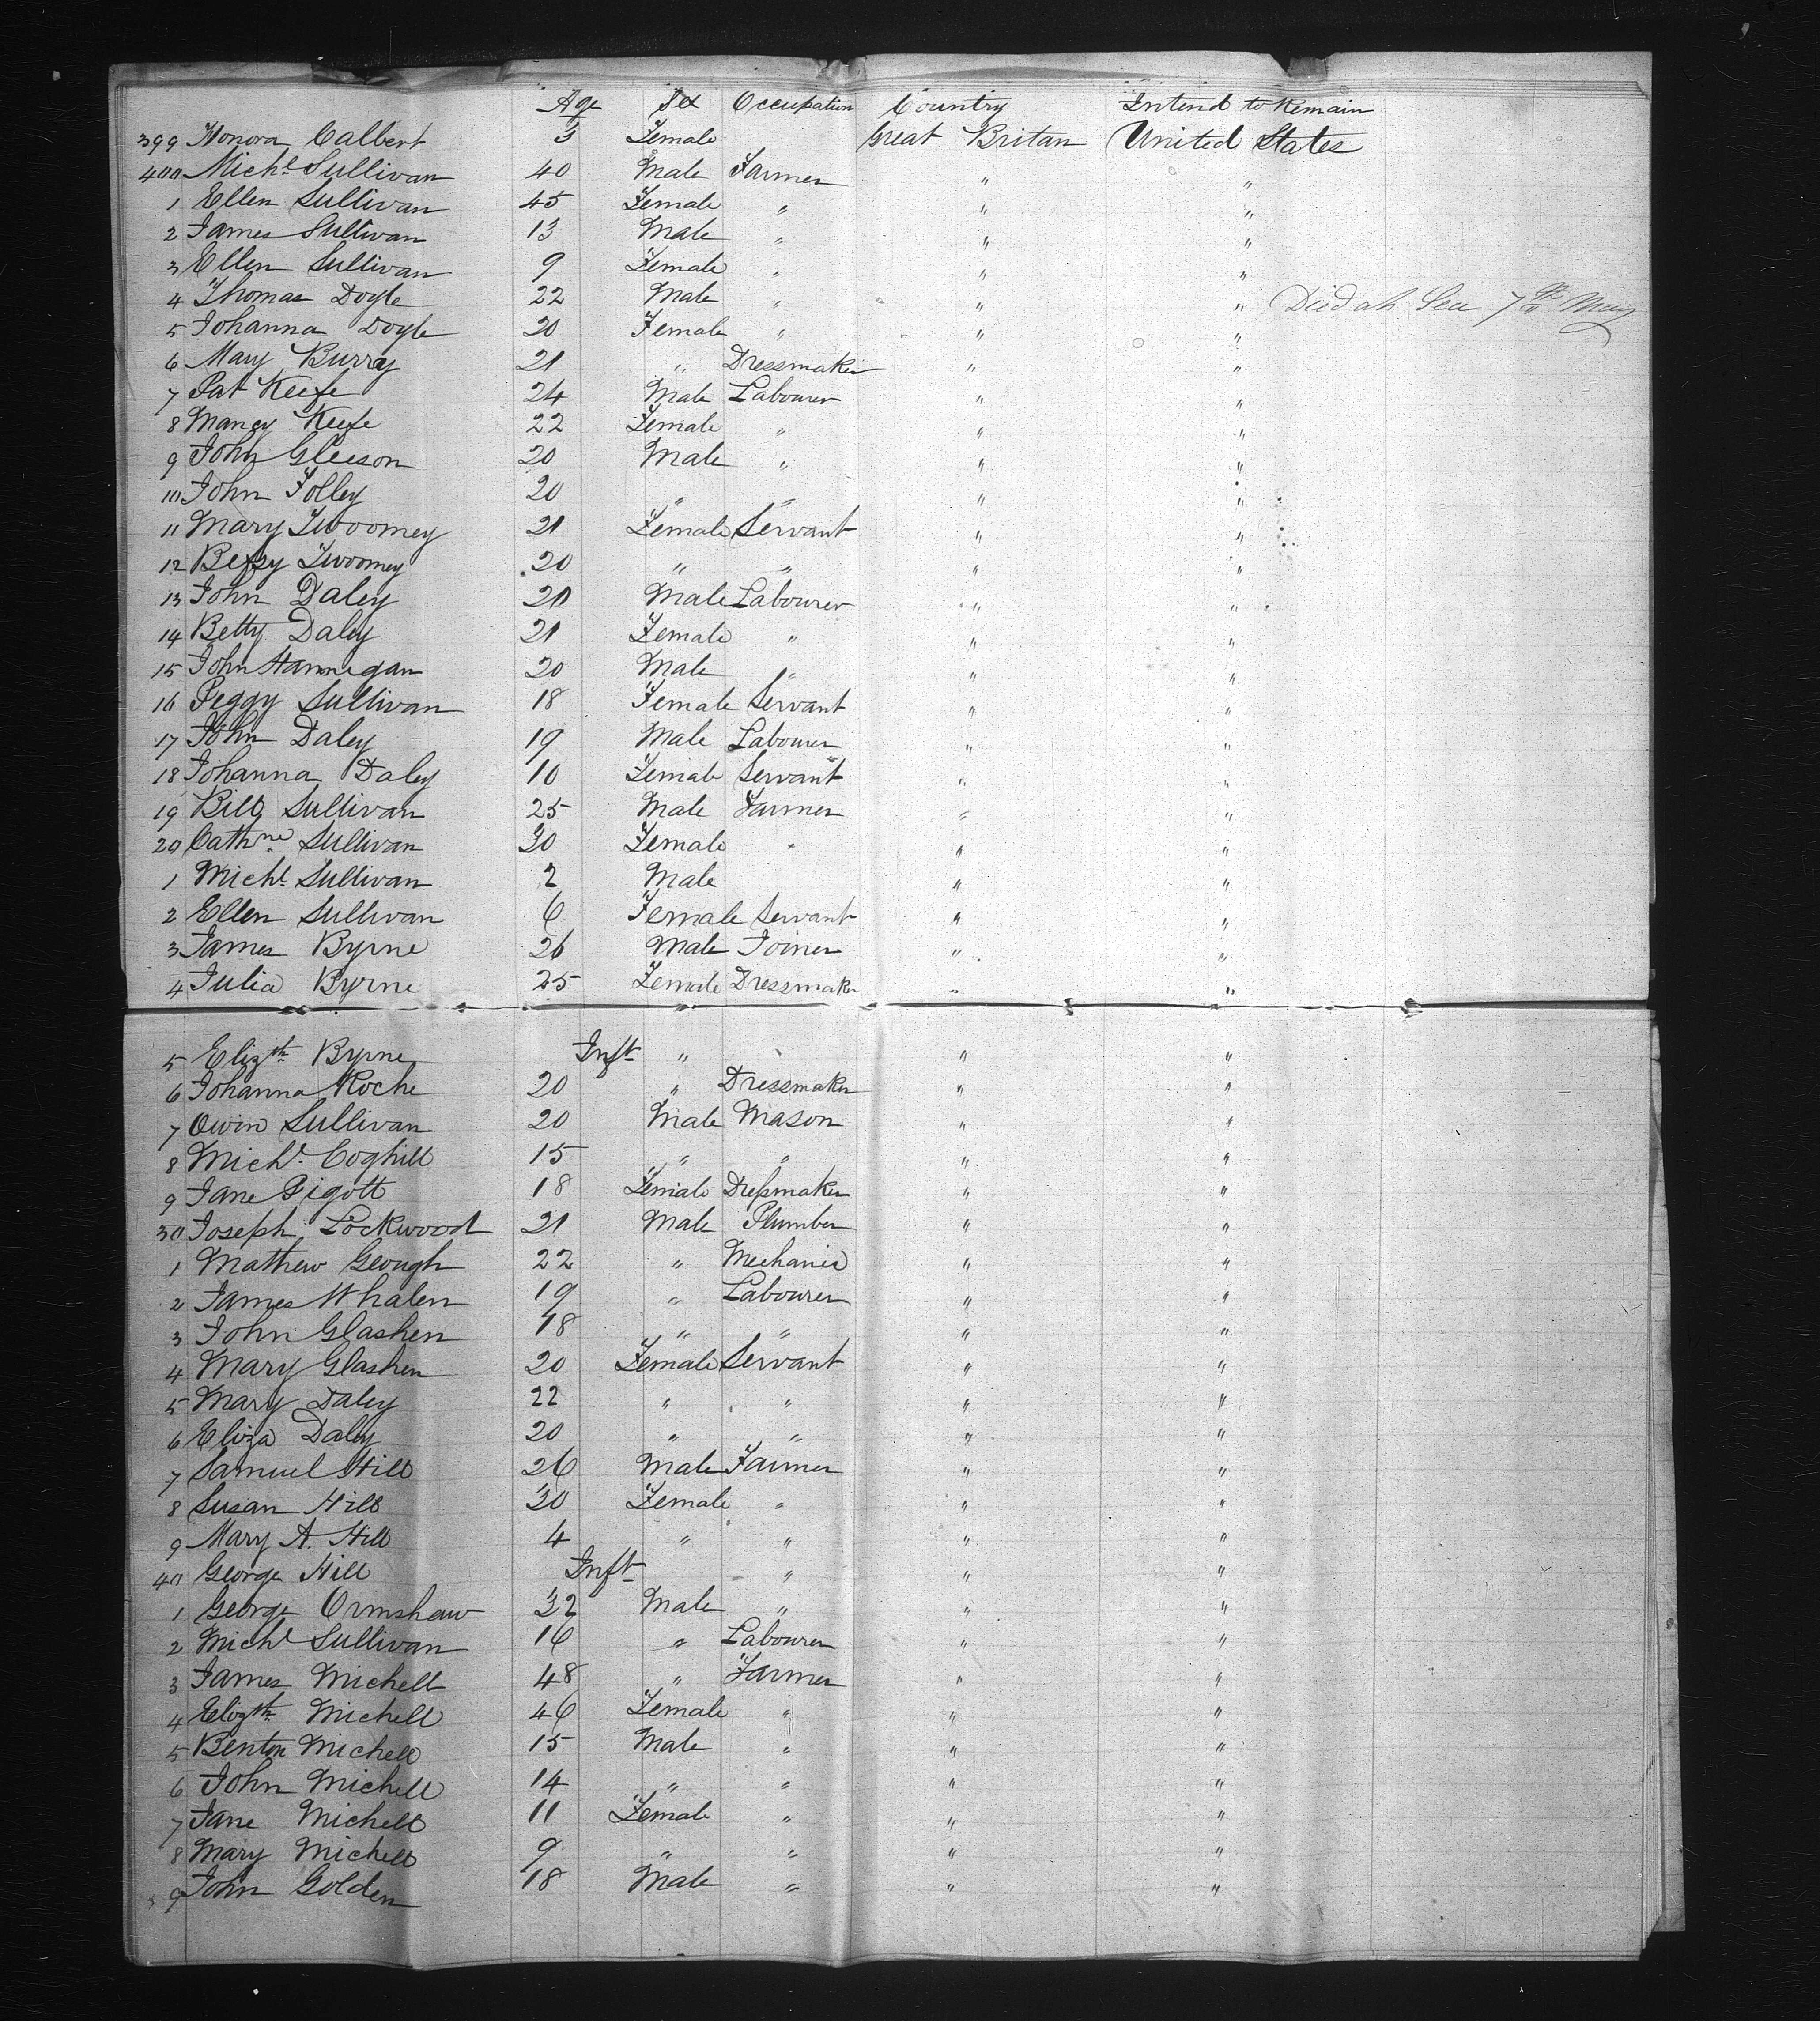 Age Sex Occupation Country Intend to Remain
399 Honora Calbert 3 Female Great Britan United States
400 Michl Sullivan 40 Male Farmer " "
1 Ellen Sullivan 45 Female " " "
2 James Sullivan 13 Male " " "
3 Ellen Sullivan 9 Female " " "
4 Thomas Doyle 22 Male " " " Died at Sea 7th May
5 Johanna Doyle 20 Female " " "
6 Mary Burray 21 " Dressmaker " "
7 Pat Keefe 24 Male Labourer " "
8 Mangy Keefe 22 Female " " "
9 John Gleeson 20 Male " " "
10 John Folley 20 " " " "
11 Mary Twoomey 21 Female Servant " "
12 Betsy Twoomey 20 " " " "
13 John Daley 20 Male Labourer " "
14 Betty Daley 21 Female " " "
15 John Hannegan 20 Male " " "
16 Peggy Sullivan 18 Female Servant " "
17 John Daley 19 Male Labourer " "
18 Johanna Daley 10 Female Servant " "
19 Bill Sullivan 25 Male Farmer " "
20 Cathne Sullivan 30 Female " " "
1 Michl Sullivan 2 Male " "
2 Ellen Sullivan 6 Female Servant " "
3 James Byrne 26 Male Joiner " "
4 Julia Byrne 25 Female Dressmaker " "
5 Elizth Byrne Inft " " "
6 Johanna Roche 20 " Dressmaker " "
7 Owin Sullivan 20 Male Mason " "
8 Michl Coghill 15 " " " "
9 Jane Pigott 18 Female Dressmaker " "
30 Joseph Lockwood 21 Male Plumber " "
1 Mathew Geough 22 " Mechanic " "
2 James Whalen 19 " Labourer " "
3 John Glashen 18 " " " "
4 Mary Glashen 20 Female Servant " "
5 Mary Daley 22 " " " "
6 Eliza Daley 20 " " " "
7 Samuel Hill 26 Male Farmer " "
8 Susan Hill 30 Female " " "
9 Mary A. Hill 4 " " " "
40 George Hill Inft " " "
1 George Ormshaw 32 Male " " "
2 Michl Sullivan 16 " Labourer " "
3 James Michell 48 " Farmer " "
4 Elizth Michell 46 Female " " "
5 Benton Michell 15 Male " " "
6 John Michell 14 " " " "
7 Jane Michell 11 Female " " "
8 Mary Michell 9 " " " "
9 John Golden 18 Male " " "